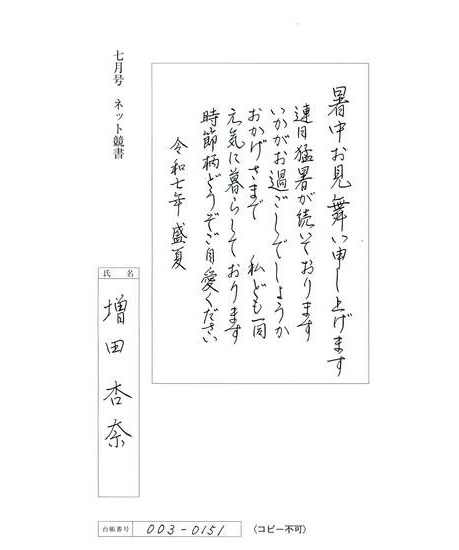 七月号 ネット競書
暑中お見舞い申し上げます
連日猛暑が続いております
いかがお過ごしでしょうか
おかげさまで 私ども一同
元気に暮らしております
時節柄どうぞご自愛ください
令和七年 盛夏
氏名
増田杏奈
台帳番号 003-0151 〈コピー不可〉